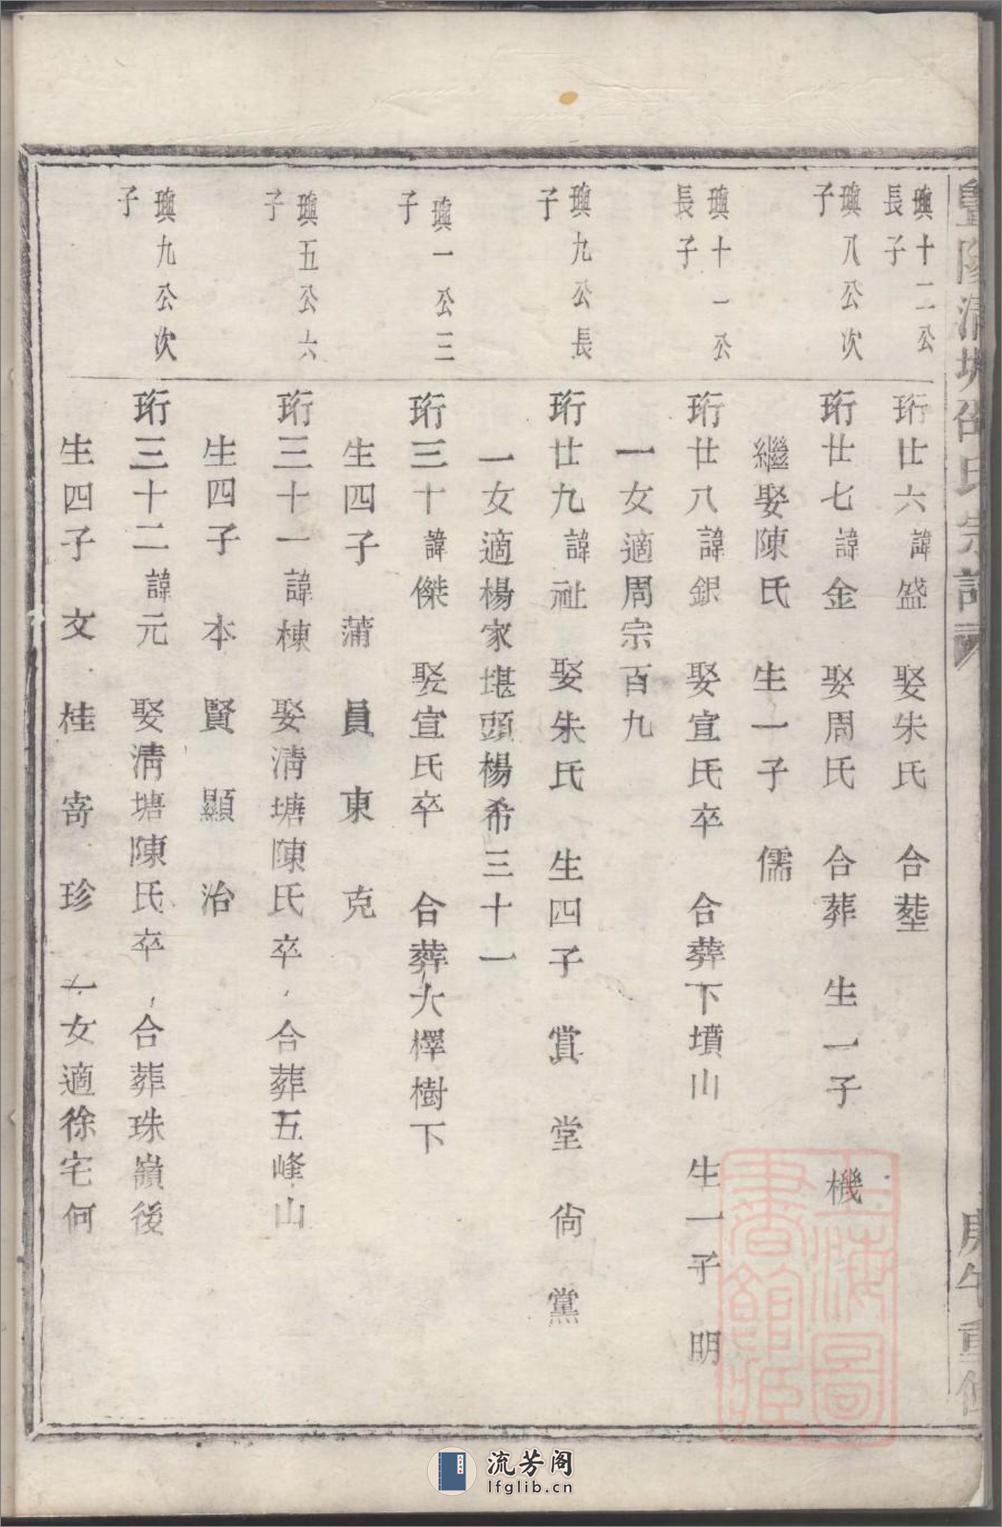 暨陽清塘邵氏宗譜
庚午重修
璵十二公
長子
珩廿六諱盛 娶朱氏 合塟
璵八公次
子
珩廿七諱金 娶周氏 合葬 生一子 機
繼娶陳氏 生一子 儒
璵十一公
長子
珩廿八諱銀 娶宣氏卒 合葬下墳山 生一子 明
一女適周宗百九
璵九公長
子
珩廿九諱祉 娶朱氏 生四子 賞 堂 尙 黨
一女適楊家堪頭楊希三十一
璵一公三
子
珩三十諱傑 娶宣氏卒 合葬大檡樹下
生四子 蒲 員 東 克
璵五公六
子
珩三十一諱棟 娶清塘陳氏卒 合葬五峰山
生四子 本 賢 顯 治
璵九公次
子
珩三十二諱元 娶清塘陳氏卒 合葬珠嶺後
生四子 文 桂 寄 珍 一女適徐宅何
上海圖
書館藏
流芳阁
lfglib.cn